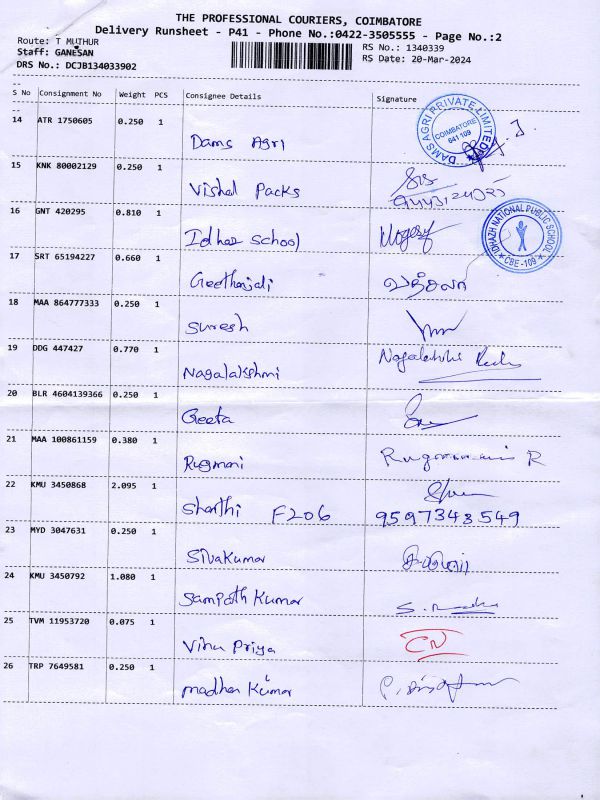 THE PROFESSIONAL COURIERS, COIMBATORE
Delivery Runsheet - P41 - Phone No.:0422-3505555 - Page No.:2
Route: T MUTHUR
RS No.: 1340339
Staff: GANESAN
RS Date: 20-Mar-2024
DRS No.: DCJB134033902
S No Consignment No Weight PCS Consignee Details Signature
14 ATR 1750605 0.250 1
Dams Agri
DAMS AGRI PRIVATE LIMITED
COIMBATORE
641 109
15 KNK 80002129 0.250 1
Vishal Packs
16 GNT 420295 0.810 1
Idhaz School
IDHAZH NATIONAL PUBLIC SCHOOL
CBE-109
17 SRT 65194227 0.660 1
Geethanjali
வத்சலா
18 MAA 864777333 0.250 1
Suresh
19 DDG 447427 0.770 1
Nagalakshmi
Nagalakshmi
20 BLR 4604139366 0.250 1
Geeta
21 MAA 100861159 0.380 1
Rugmani
Rugmani R
22 KMU 3450868 2.095 1
Shanthi F206
9597343549
23 MYD 3047631 0.250 1
Sivakumar
24 KMU 3450792 1.080 1
Sampath Kumar
25 TVM 11953720 0.075 1
Vinu Priya
CN
26 TRP 7649581 0.250 1
Madhan Kumar